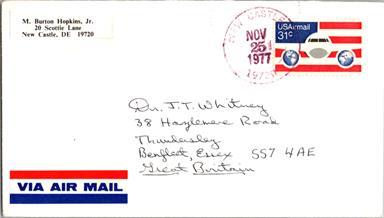 M. Burton Hopkins, Jr.
20 Scottie Lane
New Castle, DE 19720
NEW CASTLE
NOV
25
1977
19720
USAirmail
31c
Dr. J.T. Whitney
38 Hazlemere Road
Thundersley
Benfleet, Essex SS7 4AE
Great Britain
VIA AIR MAIL